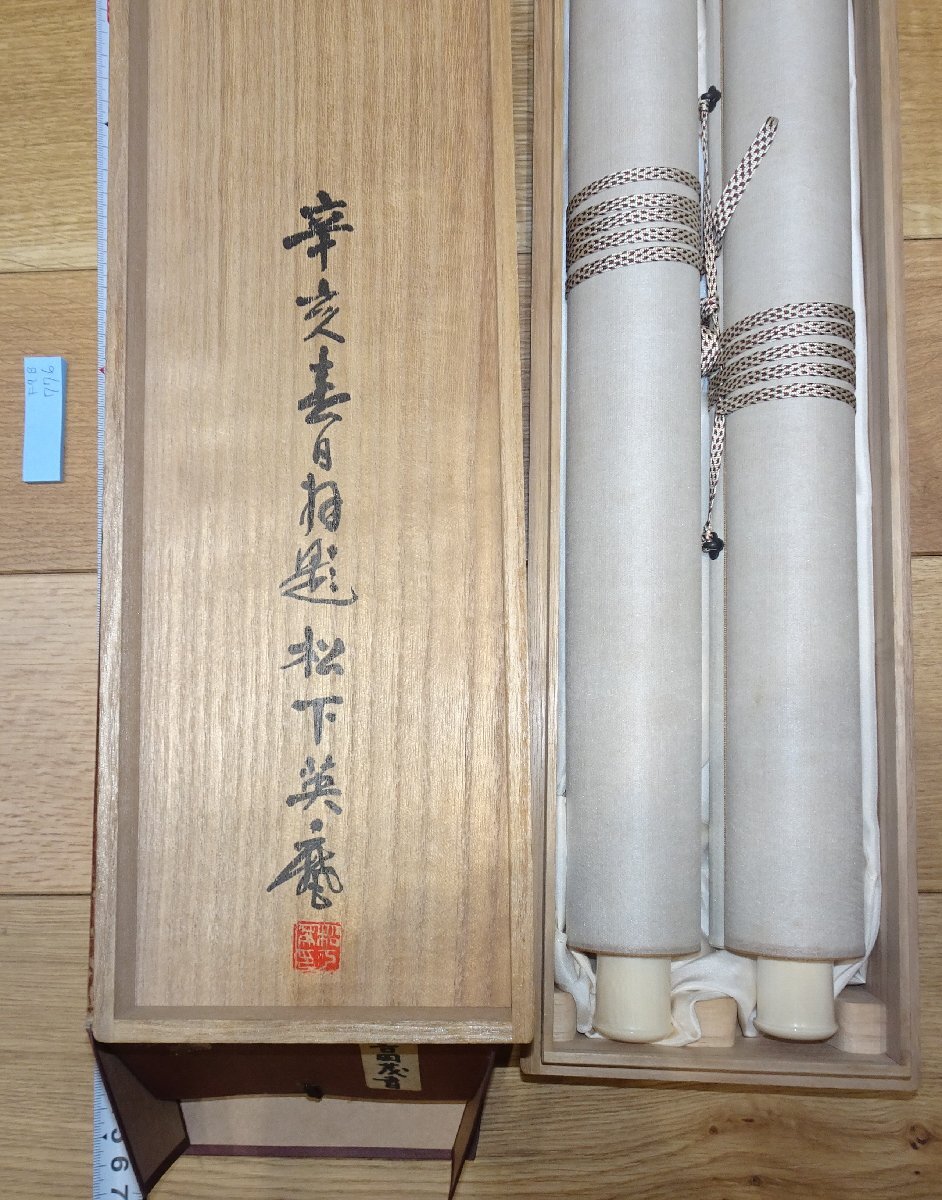 辛亥春日拜題 松下英麿
F9B
776
5 6 7